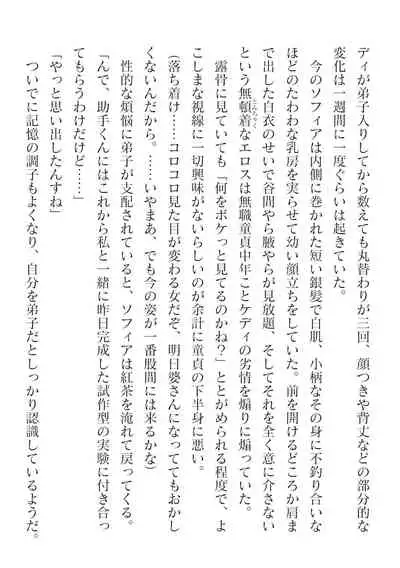 ディが弟子入りしてから数えても丸替わりが三回、顔つきや背丈などの部分的な
変化は一週間に一度ぐらいは起きていた。
今のソフィアは内側に巻かれた短い銀髪で白肌、小柄なその身に不釣り合いな
ほどのたわわな乳房を実らせて幼い顔立ちをしていた。前を開けるどころか肩ま
で出した白衣のせいで谷間やら腋やらが見放題、そしてそれを全く意に介さない
という無頓着なエロスは無職童貞中年ことケディの劣情を煽りに煽っていた。
露骨に見ていても「何をボケっと見てるのかね？」ととがめられる程度で、よ
こしまな視線に一切興味がないらしいのが余計に童貞の下半身に悪い。
(落ち着け……コロコロ見た目が変わる女だぞ、明日婆さんになっててもおかし
くないんだから。……いやまあ、でも今の姿が一番股間には来るかな)
性的な煩悩に弟子が支配されていると、ソフィアは紅茶を淹れて戻ってくる。
「んで、助手くんにはこれから私と一緒に昨日完成した試作型の実験に付き合っ
てもらうわけだけど……」
「やっと思い出したんすね」
ついでに記憶の調子もよくなり、自分を弟子だとしっかり認識しているようだ。